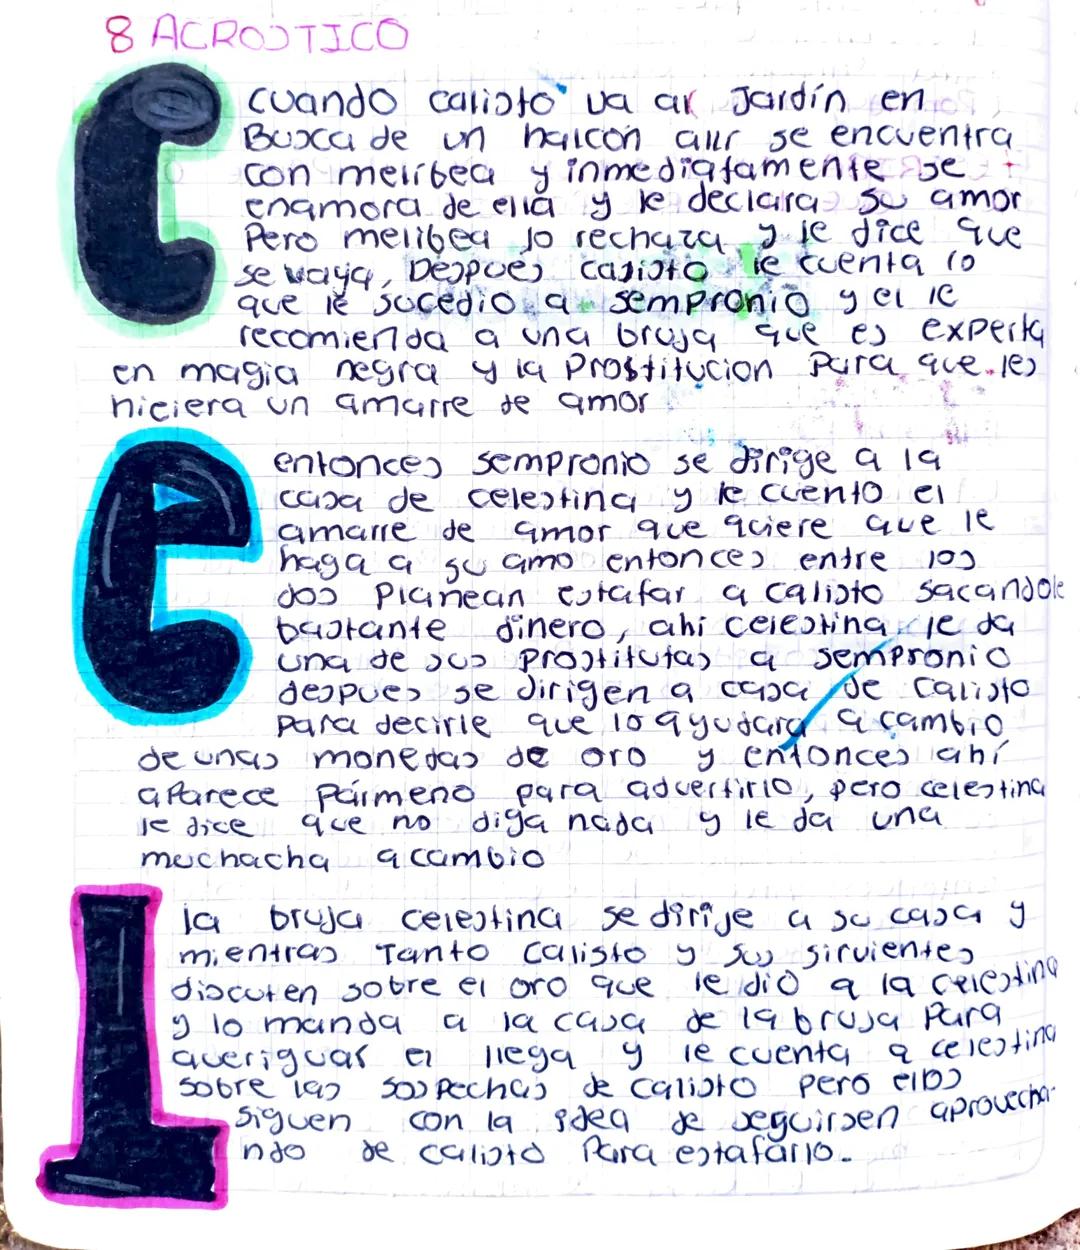 8 ACROSTICO
C
cuando calisto va al Jardín en
Busca de un halcón allí se encuentra
con melibea y inmediatamente se
enamora de ella y le declara su amor
Pero melibea lo rechaza y le dice que
se vaya, Después calisto le cuenta lo
que le sucedio a sempronio y el le
recomienda a una bruja que es experta
en magia negra y la Prostitucion Para que les
hiciera un amarre de amor
e
entonces sempronio se dirige a la
casa de celestina y le cuento el
amarre de amor que quiere que le
haga a su amo entonces entre los
dos Planean estafar a calisto sacandole
bastante dinero, ahi celestina le da
una de sus Prostitutas a sempronio
despues se dirigen a casa de calisto
Para decirle que lo ayudara a cambio
de unas monedas de oro y entonces ahí
aParece Pármeno para advertirlo, pero celestina
le dice que no diga nada y le da una
muchacha a cambio
L
la bruja celestina se dirije a su casa y
mientras Tanto calisto y sus sirvientes
discuten sobre el oro que le dio a la celestina
y lo manda a la casa de la bruja Para
averiguar el llega y le cuenta a celestina
sobre las sosPechas de calisto pero ellos
siguen con la idea de seguirsen aprovecha-
ndo de calisto Para estafarlo.